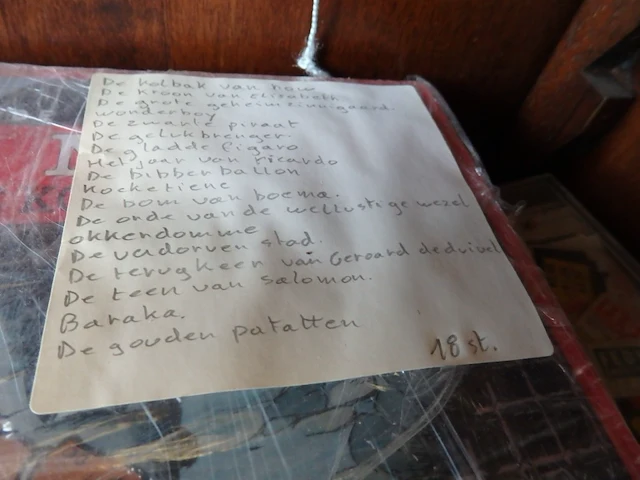 De kolbak van how
De kroon van elisabeth
De grote geheimzinnigaard.
wonderboy
De zwarte piraat
De gelukbrenger.
De gladde figaro
Het jaar van ricardo
De bibberballon
Kocketiene
De bom van boema.
De orde van de wellustige wezel
okkerdomme
De verdorven stad.
De terugkeer van Geroard deduivel
De teen van salomon.
Baraka.
De gouden patatten
18 st.